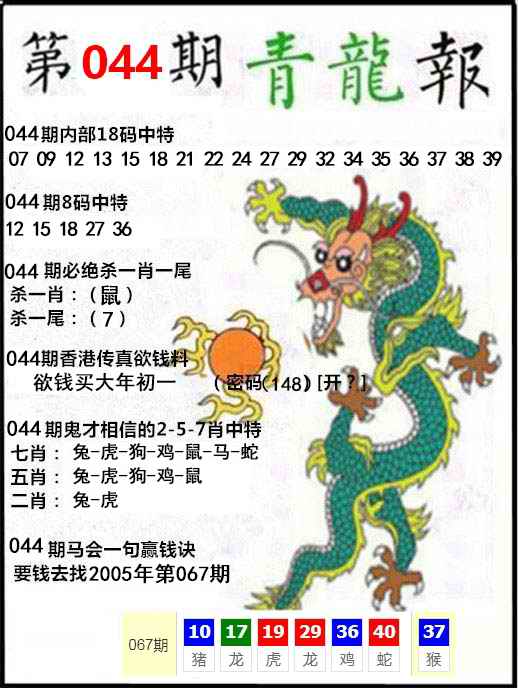 第044期青龍報
044期内部18码中特
07 09 12 13 15 18 21 22 24 27 29 32 34 35 36 37 38 39
044期8码中特
12 15 18 27 36
044 期必绝杀一肖一尾
杀一肖：（鼠）
杀一尾：（7）
044期香港传真欲钱料
欲钱买大年初一 （密码(148)[开？]
044期鬼才相信的2-5-7肖中特
七肖： 兔-虎-狗-鸡-鼠-马-蛇
五肖： 兔-虎-狗-鸡-鼠
二肖： 兔-虎
044期马会一句赢钱诀
要钱去找2005年第067期
067期 10 17 19 29 36 40 37
猪 龙 虎 龙 鸡 蛇 猴